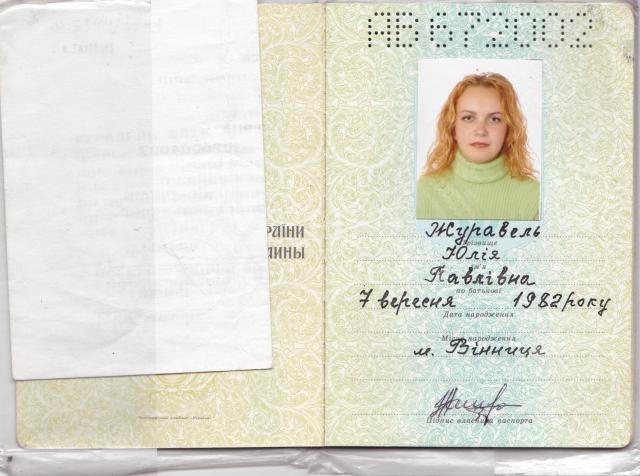 раїни
аины
АВ672002
Журавель
Прізвище
Юлія
Ім'я
Павлівна
по батькові
7 вересня 1982 року
Дата народження
Місце народження
м. Вінниця
Підпис власника паспорта